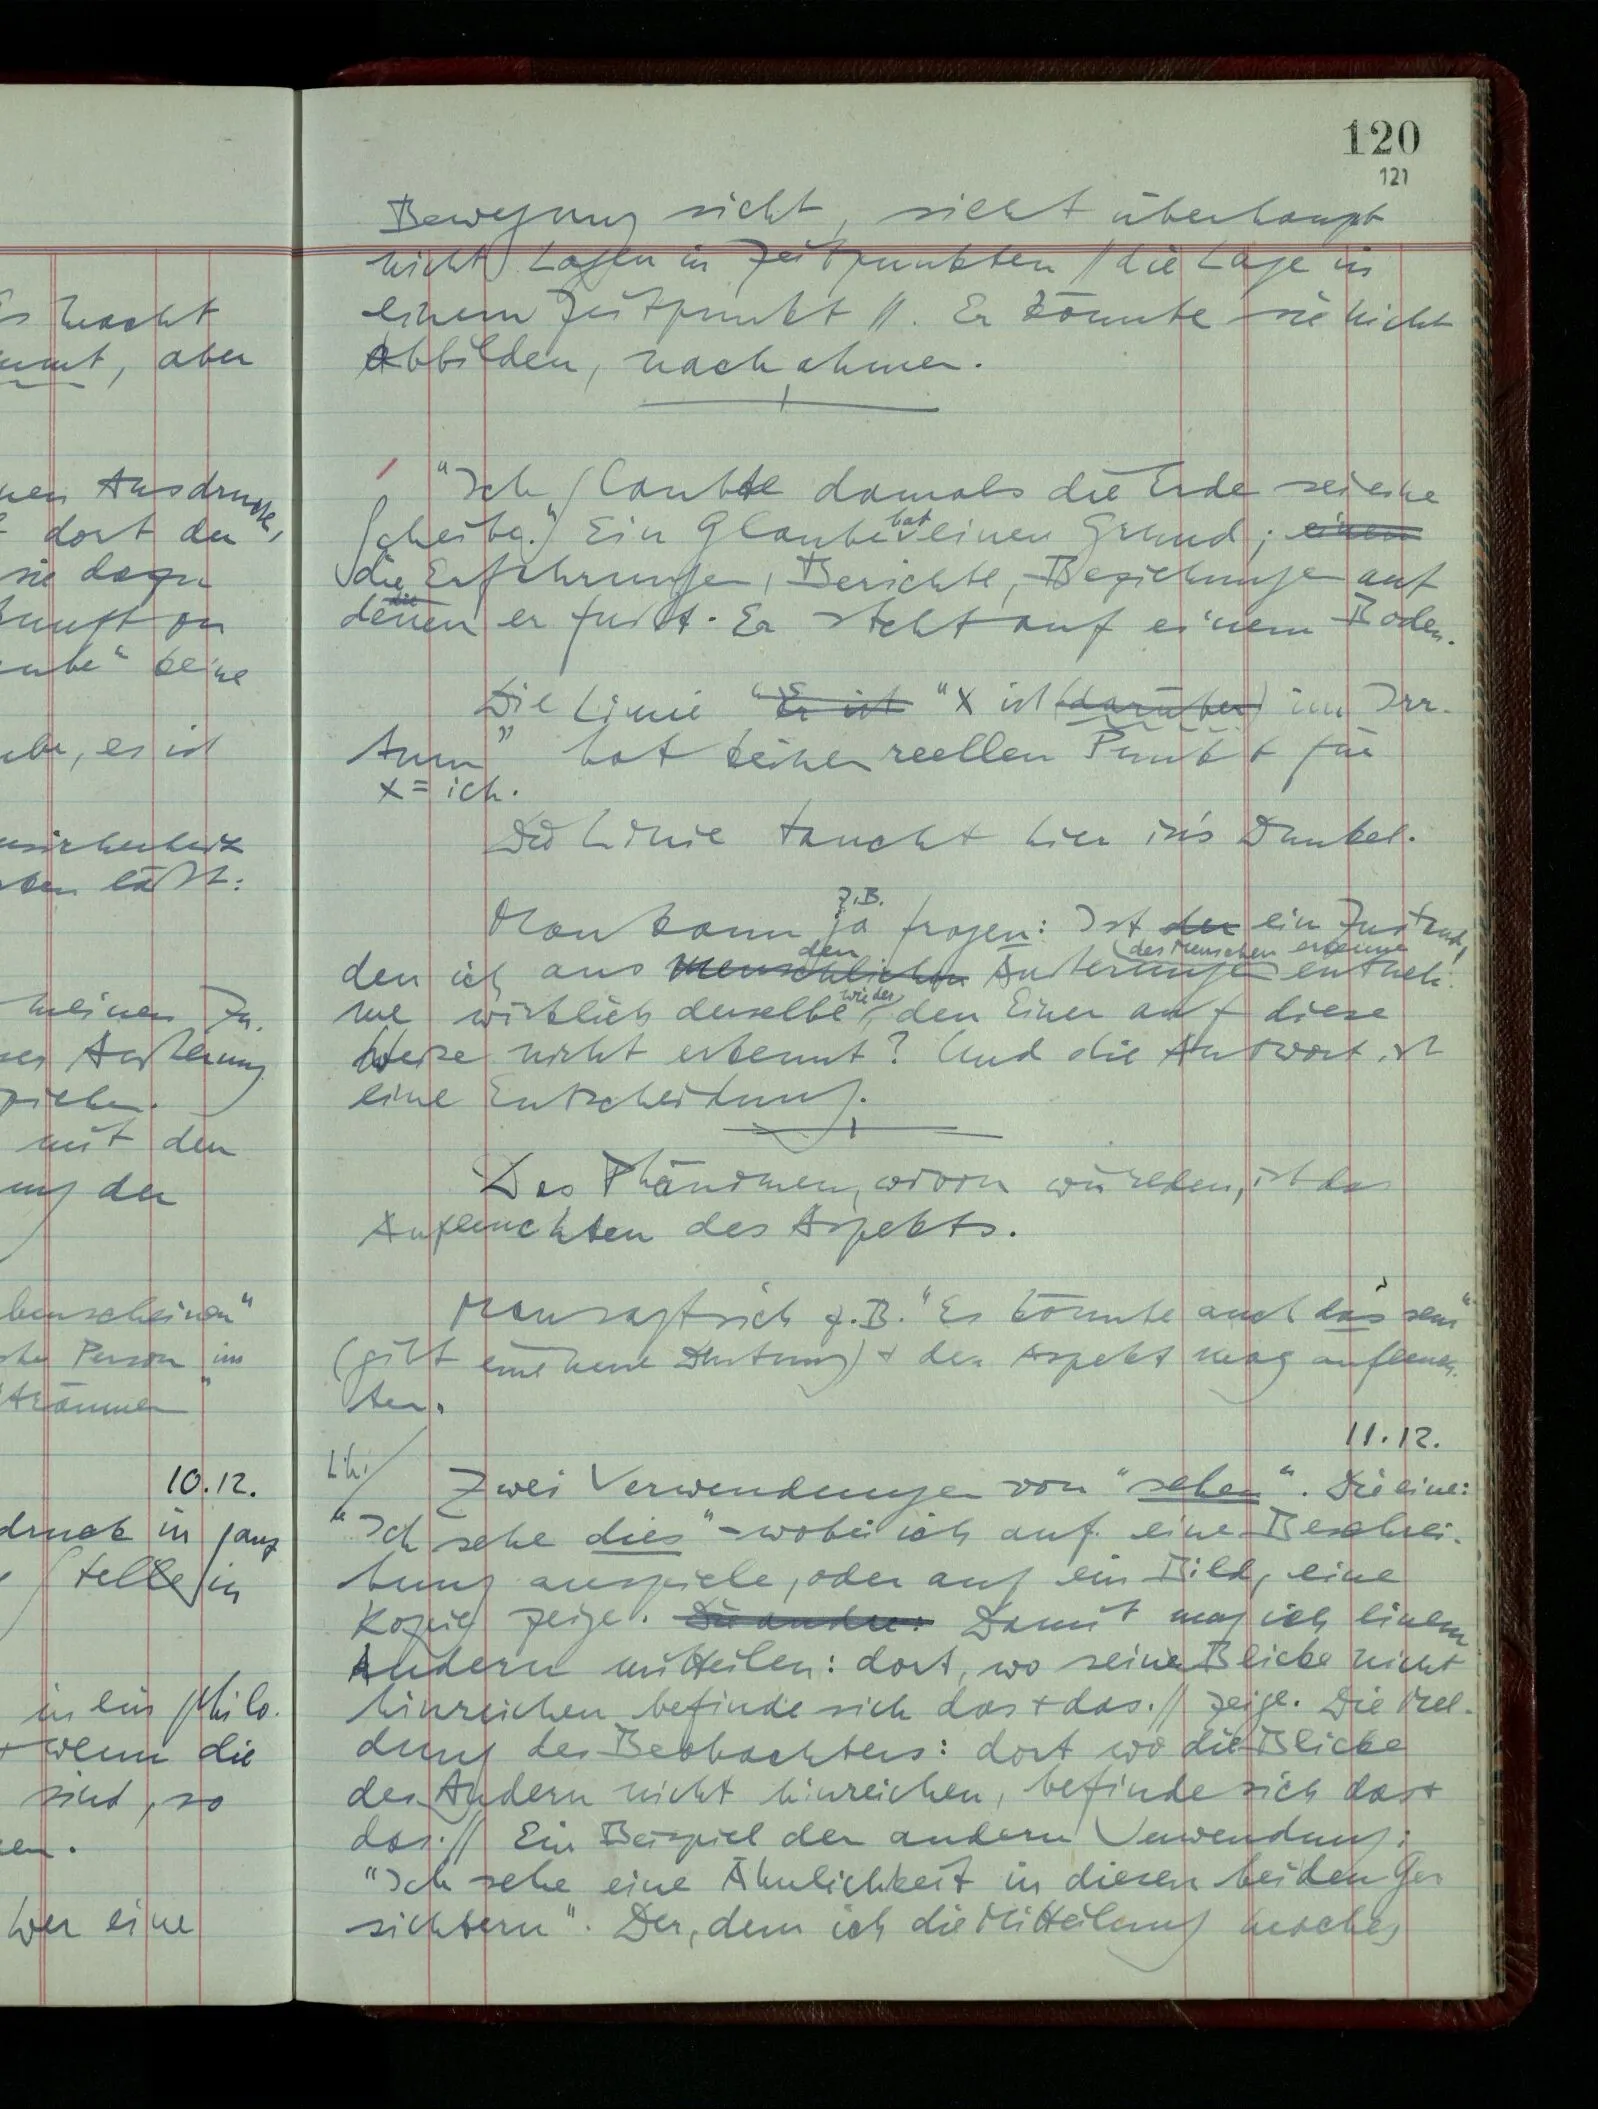 120
121
Bewegung sieht, sieht überhaupt
nicht Lagen in Zeitpunkten // die Lage in
einem Zeitpunkt //. Er könnte sie nicht
Abbilden, nachahmen.
"Ich glaubte damals die Erde sei eine
Scheibe." Ein Glaube hat einen Grund; einen
die Erfahrungen, Berichte, Beziehungen auf
die
denen er fußt. Er steht auf einem Boden.
Die Linie "Er ist "x ist (darüber) im Irr-
tum" hat keinen reellen Punkt für
x = ich.
Die Linie taucht hier in's Dunkel.
Man kann z.B. ja fragen: Ist der ein Zustand,
den ich aus menschlichen den Äußerungen (des Menschen erkenne entneh-
me wirklich derselbe wie der, den Einer auf diese
Weise nicht erkennt? Und die Antwort ist
eine Entscheidung.
Das Phänomen, wovon wir reden, ist das
Aufleuchten des Aspekts.
Man sagt sich z.B. "Es könnte auch das sein"
(gibt eine neue Deutung) + der Aspekt mag aufleuch-
ten.
11.12.
Zwei Verwendungen von "sehen". Die eine:
"Ich sehe dies" – wobei ich auf eine Beschrei-
bung anspiele, oder auf ein Bild, eine
Kopie zeige. Die andre: Damit mag ich einem
Andern mitteilen: dort, wo seine Blicke nicht
hinreichen befinde sich das + das. // zeige. Die Mel-
dung des Beobachters: dort wo die Blicke
des Andern nicht hinreichen, befinde sich das +
das. // Ein Beispiel der andern Verwendung:
"Ich sehe eine Ähnlichkeit in diesen beiden Ge-
sichtern". Der, dem ich die Mitteilung mache,
aber
Ausdruck,
dort der
sie dazu
keine
es ist
läßt:
meinen Zu-
Äußerung
mit den
der
Person im
träumen"
10.12.
in ganz
Stelle in
in ein philo-
wenn die
sind, so
Wer eine